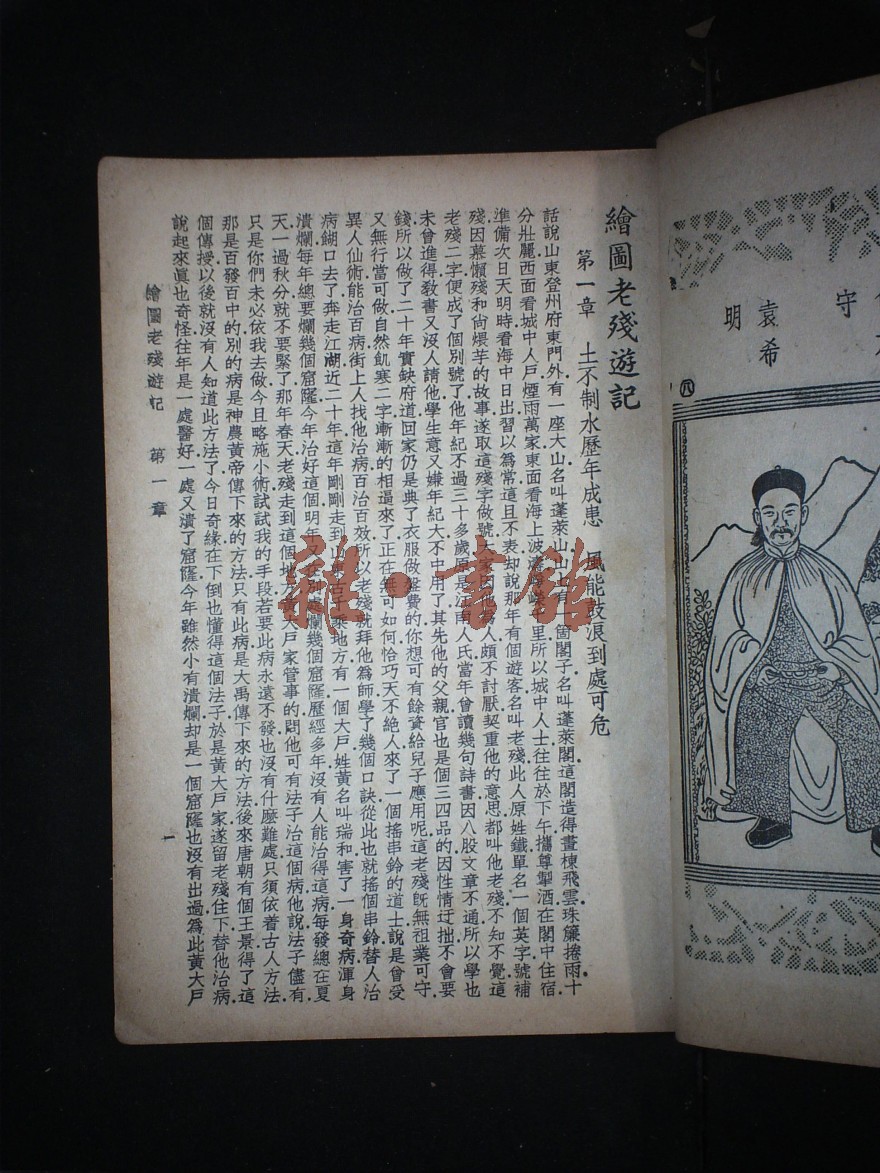 守
袁希
明
八
繪圖老殘遊記
第一章 土不制水歷年成患 風能鼓浪到處可危
話說山東登州府東門外有一座大山名叫蓬萊山山上有一箇閣子名叫蓬萊閣這閣造得畫棟飛雲珠簾捲雨十
分壯麗西面看城中人戶煙雨萬家東面看海上波濤 里所以城中人士往往於下午攜尊挈酒在閣中住宿
準備次日天明時看海中日出習以爲常這且不表却說那年有個遊客名叫老殘此人原姓鐵單名一個英字號補
殘因慕懶殘和尙煨芋的故事遂取這殘字做號大家因他爲人頗不討厭契重他的意思都叫他老殘不知不覺這
老殘二字便成了個別號了他年紀不過三十多歲原是江南人氏當年曾讀幾句詩書因八股文章不通所以學也
未曾進得敎書又沒人請他學生意又嫌年紀大不中用了其先他的父親官也是個三四品的因性情迂拙不會要
錢所以做了二十年實缺府道回家仍是典了衣服做盤費的你想可有餘資給兒子應用呢這老殘旣無祖業可守
又無行當可做自然飢寒二字漸漸的相逼來了正在無可如何恰巧天不絕人來了一個搖串鈴的道士說是曾受
異人仙術能治百病街上人找他治病百治百效所以老殘就拜他爲師學了幾個口訣從此也就搖個串鈴替人治
病餬口去了奔走江湖近二十年這年剛剛走到山東古千乘地方有一個大戶姓黃名叫瑞和害了一身奇病渾身
潰爛每年總要爛幾個窟窿今年治好這個明年又在別處爛幾個窟窿歷經多年沒有人能治得這病每發總在夏
天一過秋分就不要緊了那年春天老殘走到這個地方黃大戶家管事的問他可有法子治這個病他說法子儘有
只是你們未必依我去做今且略施小術試試我的手段若要此病永遠不發也沒有什麽難處只須依着古人方法
那是百發百中的別的病是神農黃帝傳下來的方法只有此病是大禹傳下來的方法後來唐朝有個王景得了這
個傳授以後就沒有人知道此方法了今日奇緣在下倒也懂得這個法子於是黃大戶家遂留老殘住下替他治病
說起來眞也奇怪往年是一處醫好一處又潰了窟窿今年雖然小有潰爛却是一個窟窿也沒有出過爲此黃大戶
繪圖老殘遊記 第一章
一
雜·書館